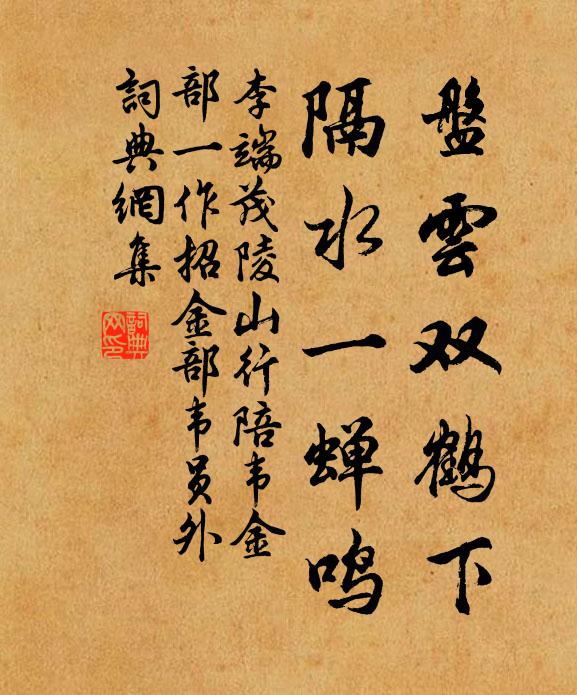 盤雲双鹤下
隔水一蝉鸣
李端茂陵山行陪韦金
部一作招金部韦员外
詞典網集
詞典
网印